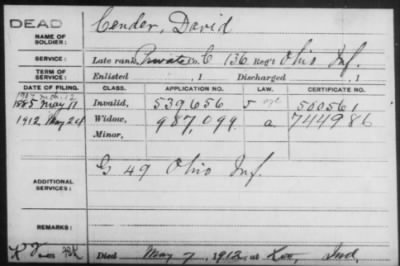 DEAD
NAME OF SOLDIER: Cender, David
SERVICE: Late rank, Private Co. C 136 Reg't Ohio Inf.
TERM OF SERVICE: Enlisted , 1 Discharged , 1
DATE OF FILING. CLASS. APPLICATION NO. LAW. CERTIFICATE NO.
1885 May 11 Invalid, 539,656 500561
1912 May 24 Widow, 987,099 a 744986
Minor,
ADDITIONAL SERVICES: G 49 Ohio Inf.
REMARKS:
Died May 7, 1912, at Ind.